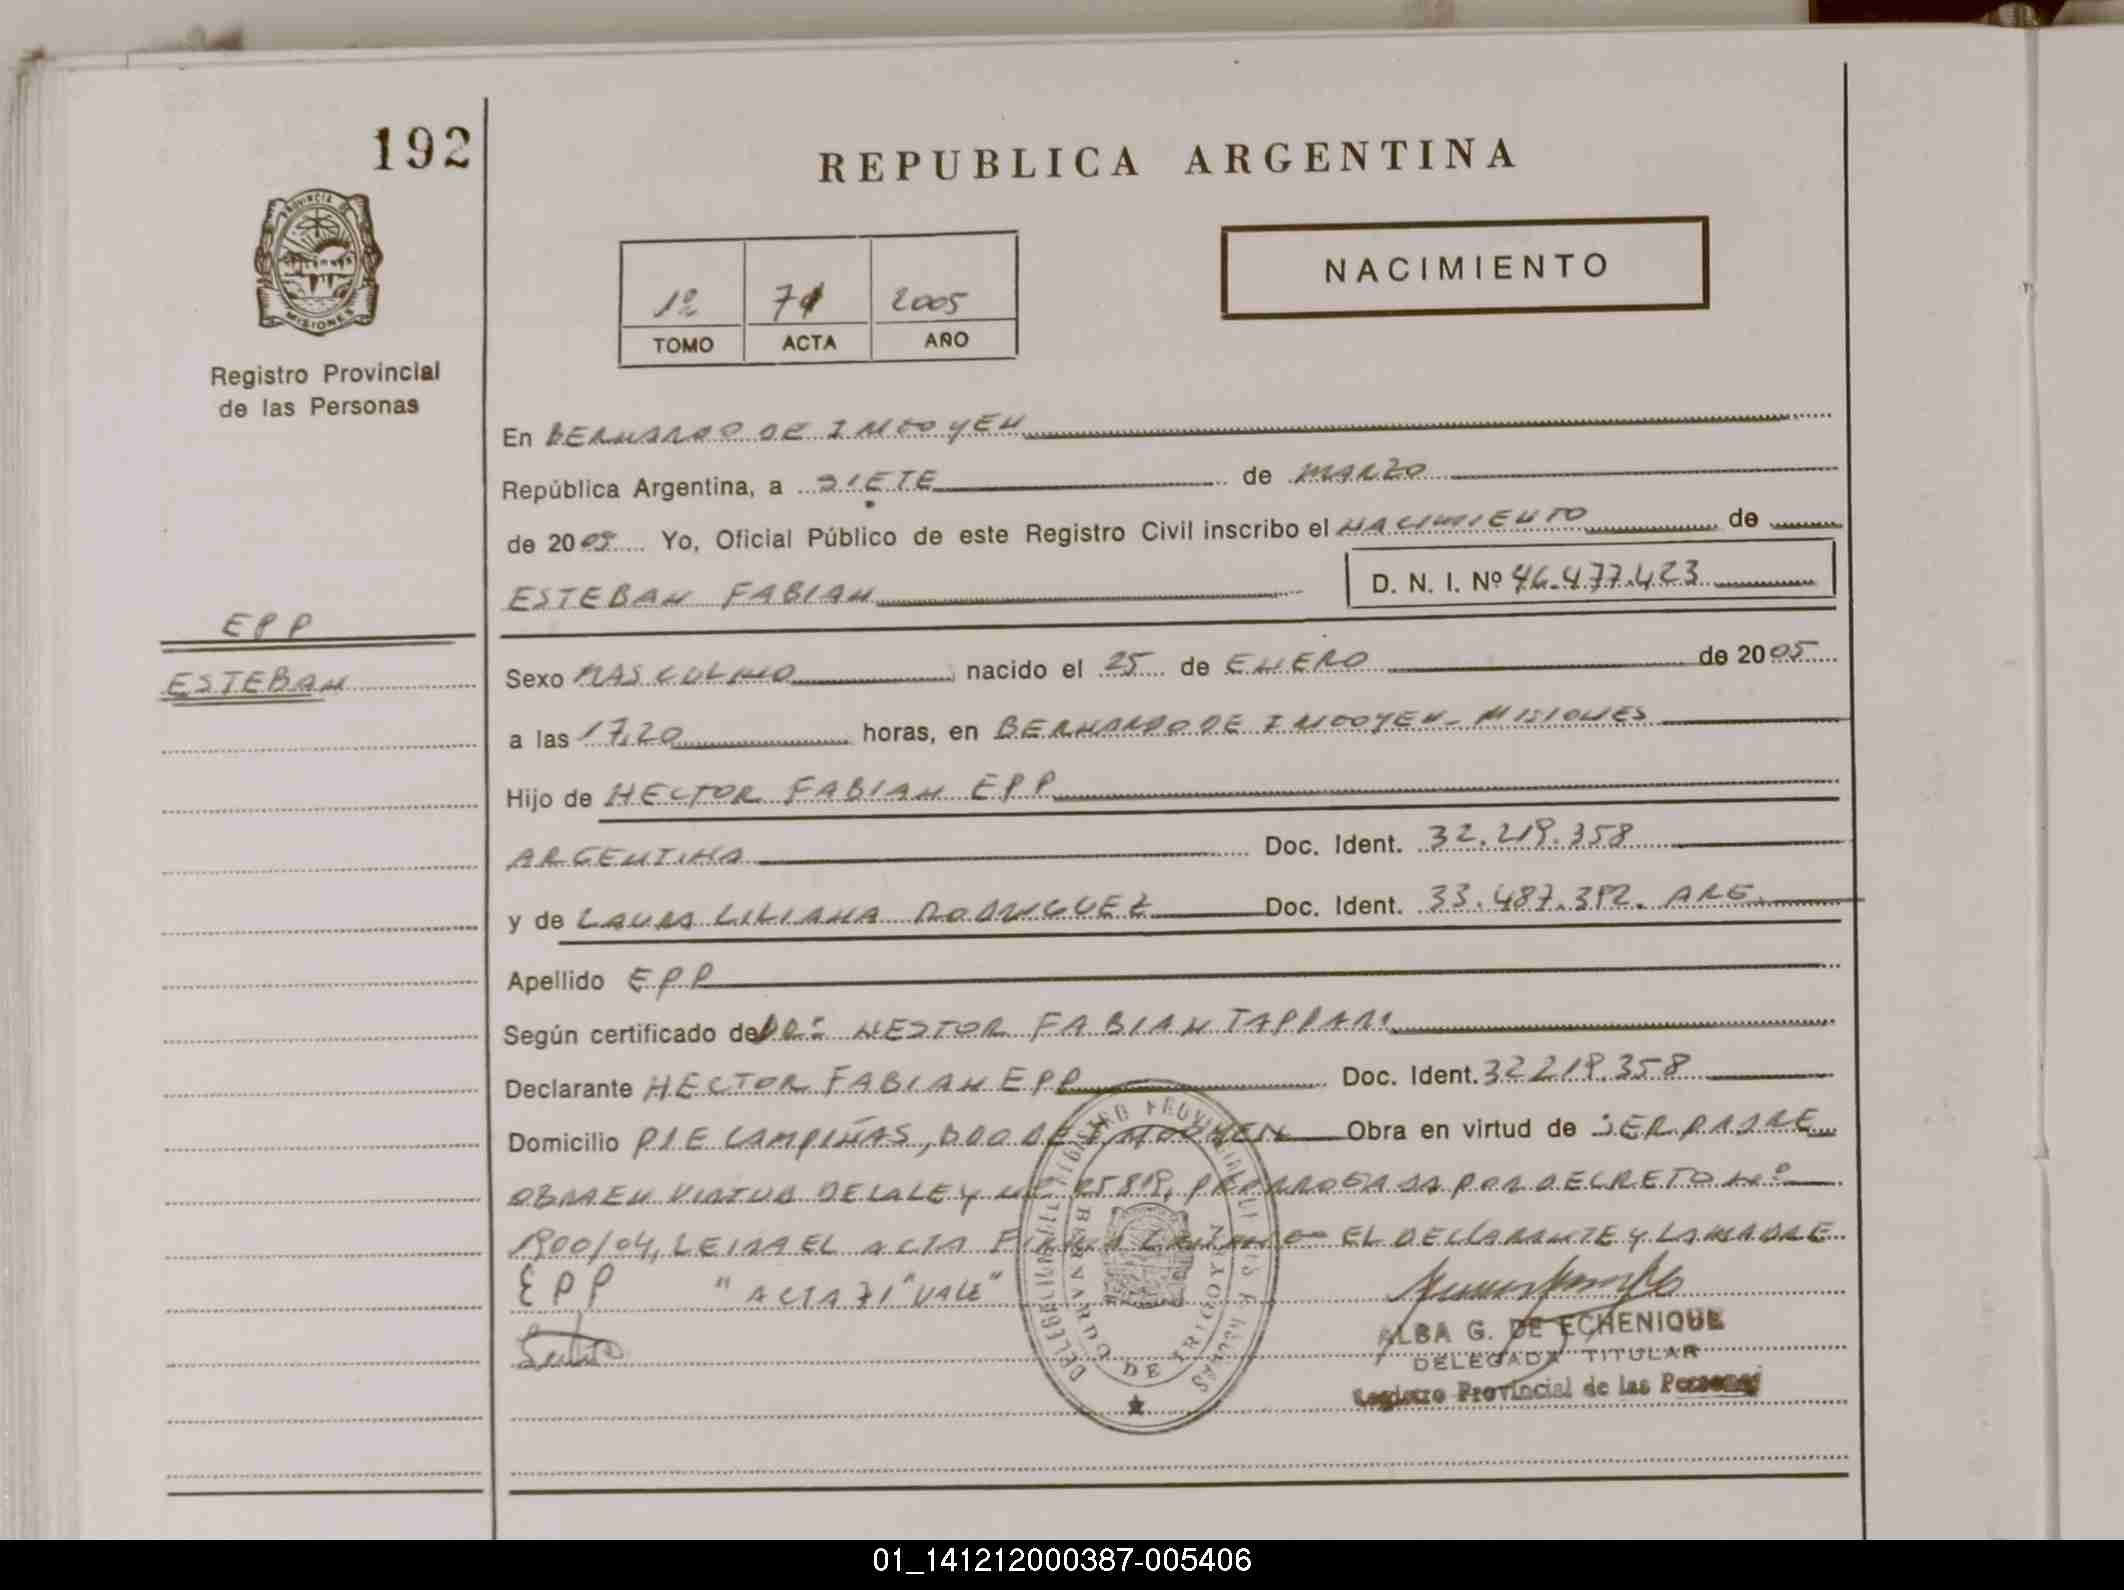 192
REPUBLICA ARGENTINA
PROVINCIA DE
MISIONES
NACIMIENTO
1º 71 2005
TOMO ACTA AÑO
Registro Provincial
de las Personas
En BERNARDO DE IRIGOYEN
República Argentina, a SIETE de MARZO
de 2005 Yo, Oficial Público de este Registro Civil inscribo el NACIMIENTO de
ESTEBAN FABIAN D. N. I. Nº 46.477.423
EPP
ESTEBAN
Sexo MASCULINO nacido el 25 de ENERO de 2005
a las 17,20 horas, en BERNARDO DE IRIGOYEN- MISIONES
Hijo de HECTOR FABIAN EPP
ARGENTINA Doc. Ident. 32.219.358
y de LAURA LILIANA RODRIGUEZ Doc. Ident. 33.487.392. ARG.
Apellido EPP
Según certificado de DR: NESTOR FABIAN TAPPARI
Declarante HECTOR FABIAN EPP Doc. Ident. 32219.358
Domicilio PJE CAMPIÑAS, BDO DE IRIGOYEN Obra en virtud de SER PADRE
OBRA EN VIRTUD DE LA LEY Nº 25819, PRORROGADA POR DECRETO Nº
1900/04, LEIDA EL ACTA FIRMAN EL DECLARANTE Y LA MADRE
EPP "ACTA 71" VALE"
ALBA G. DE ECHENIQUE
DELEGADA TITULAR
Registro Provincial de las Personas
BERNARDO DE IRIGOYEN
01_141212000387-005406